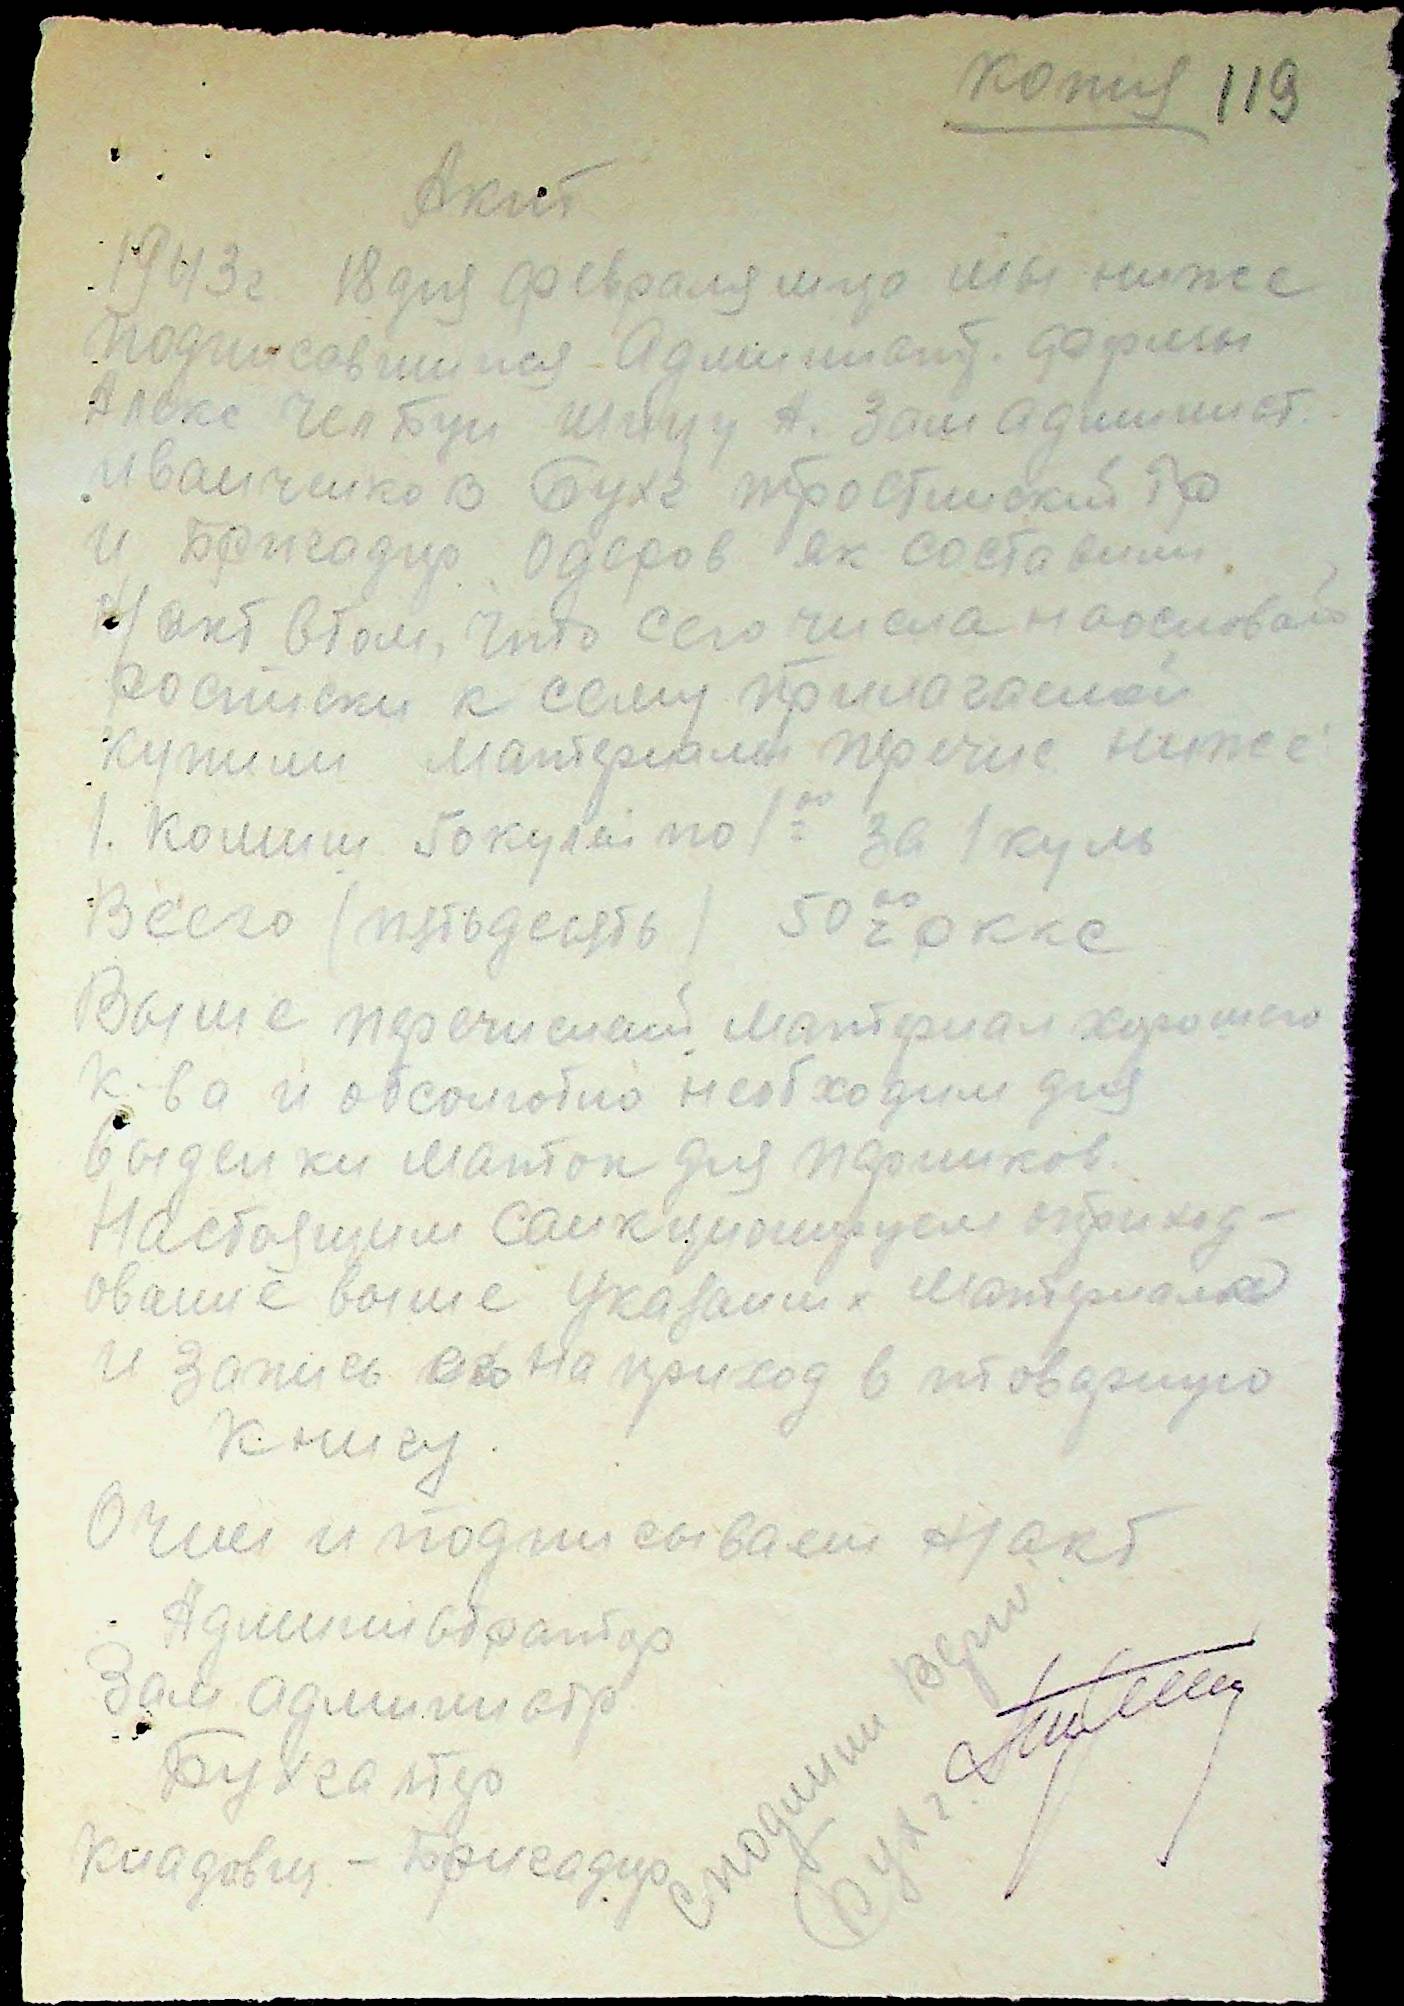 Копия 119
Акт
1943г 18 дня февраля м-ца мы ниже
подписавшиися Админист. фермы
Алекс Челбуи А. Зам админист.
Иванченко В Бухг Тростинский Гр
и Бригадир Одеров як составили
н/акт в том, что сего числа на основан
росписки к сему прилагаемой
купили материалы перечис ниже:
1. Комыш 50 кулей по 1 00 за 1 куль
Всего (пятьдесять) 50 00
Выше перечислений материал хорошего
к-ва и обсолютно необходим для
выделки маток для парников.
Настоящим санкционируем оприход-
ование выше указанных материалов
и запись его на приход в товарную
книгу.
О чем и подписываем н/акт
Администратор
Зам администр
Бухгалтер
Кладовщ - Бригадир
С подлинн верно
Бухг.